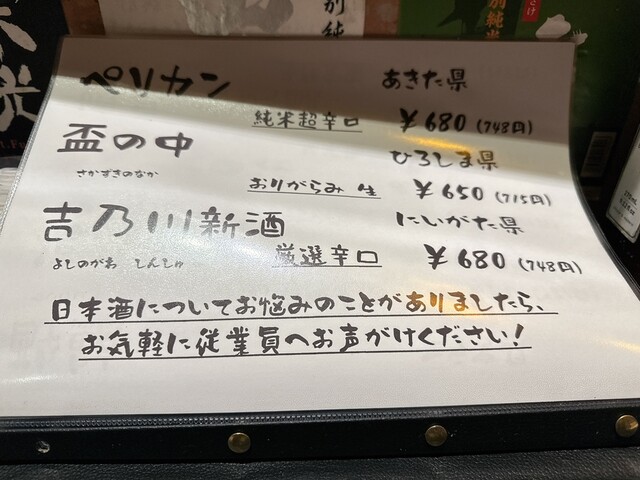 ペリカン あきた県
純米超辛口 ￥680（748円）
盃の中 ひろしま県
さかずきのなか
おりがらみ 生 ￥650（715円）
吉乃川新酒 にいがた県
よしのがわ しんしゅ
厳選辛口 ￥680（748円）
日本酒についてお悩みのことがありましたら、
お気軽に従業員へお声がけください！
別純
別純米